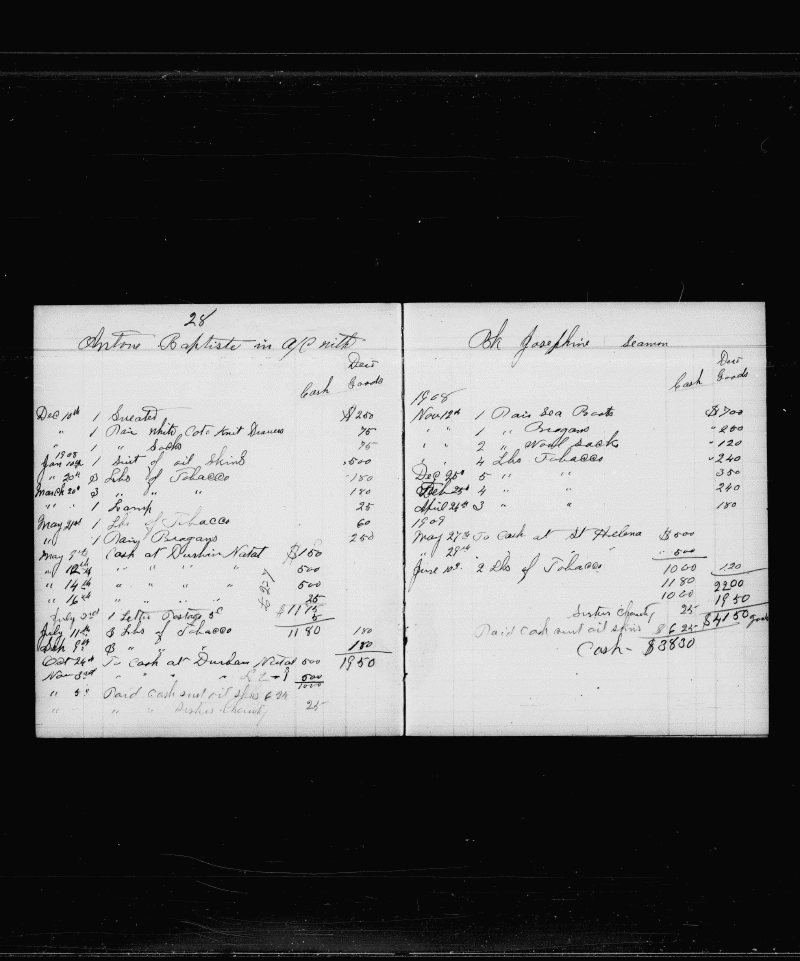 28
Antone Baptiste in a/c with
Deus
Cash Goods
Dec 10th 1 Sweater $250
" 1 Pair White Coto Knit Drawers 75
" 1 " Socks 75
1908
Jan 1 Suit of oil Skins 500
" 20th 3 Lbs of Tobacco 180
March 20th 3 " " " 180
" " 1 Lamp 25
May 21st 1 Lbs of Tobacco 60
" 1 Pair Brogans 250
May 9th Cash at Durbin Natal $150
" 12th " " " " 500
" 14th " " " " 500
" 16th " " " " 25
£2-7
$1175
July 2nd 1 Letter Postage 5c 5
1180
July 11th 3 Lbs of Tobacco 180
Sept 9th 3 " " " 180
Oct 24th To Cash at Durban Natal 500 1950
Nov 3rd " " " " £2-1 500
1000
" 5th Paid Cash suit oil skins 625
" " " Sisters Charity 25
Bk Josephine Seamen
Deus
Cash Goods
1908
Nov 12th 1 Pair Sea Boots $700
" " 1 " Brogans " 250
" " 2 " Wool Socks " 120
" " 4 Lbs Tobacco " 240
Dec 25th 5 " " 350
Feb 25th 4 " " 240
April 26th 3 " " 180
1909
May 27th To Cash at St Helena $500
" 29th " " " " 500
1000
June 10th 2 Lbs of Tobacco 120
1180 2200
1000 1950
Sisters Charity 25 $4150 goods
Paid Cash suit oil skins $625
Cash - $3830